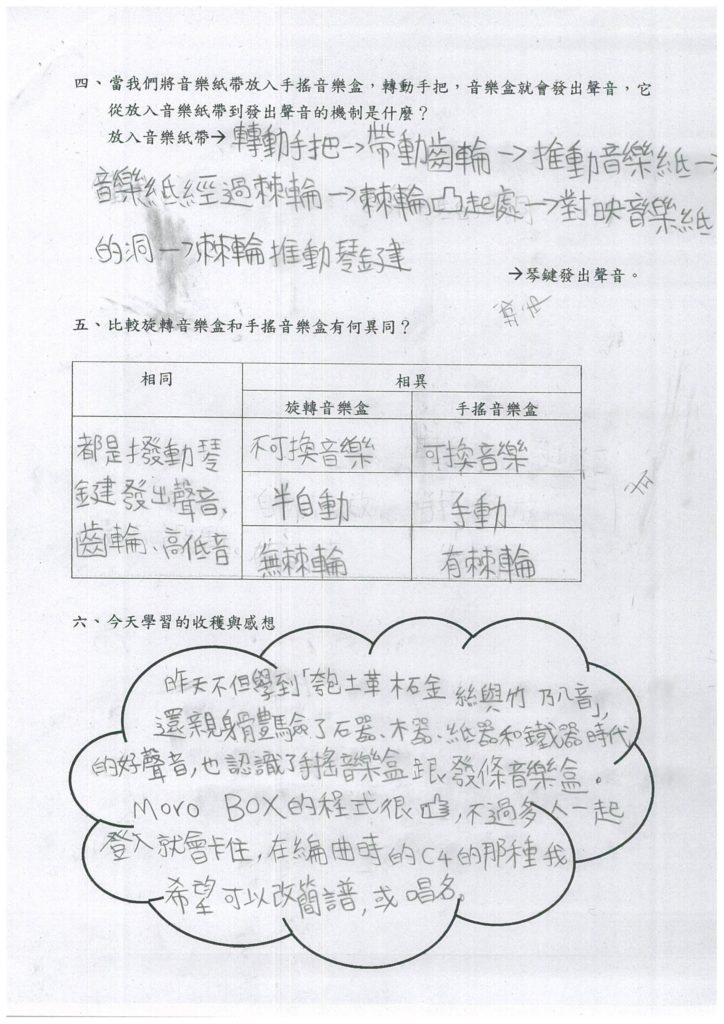 四、當我們將音樂紙帶放入手搖音樂盒，轉動手把，音樂盒就會發出聲音，它
從放入音樂紙帶到發出聲音的機制是什麼？
放入音樂紙帶→轉動手把→帶動齒輪→推動音樂紙→
音樂紙經過棘輪→棘輪凸起處→對映音樂紙
的洞→棘輪推動琴鍵
→琴鍵發出聲音。
五、比較旋轉音樂盒和手搖音樂盒有何異同？
相同 相異
旋轉音樂盒 手搖音樂盒
都是撥動琴
鍵發出聲音,
齒輪、高低音
不可換音樂 可換音樂
半自動 手動
無棘輪 有棘輪
六、今天學習的收穫與感想
昨天不但學到「匏土革木石金 絲與竹 乃八音」,
還親身體驗了石器、木器、紙器和鐵器時代
的好聲音,也認識了手搖音樂盒跟發條音樂盒。
Moro BOX的程式很 ,不過多人一起
登入就會卡住,在編曲時的C4的那種我
希望可以改簡譜,或唱名。